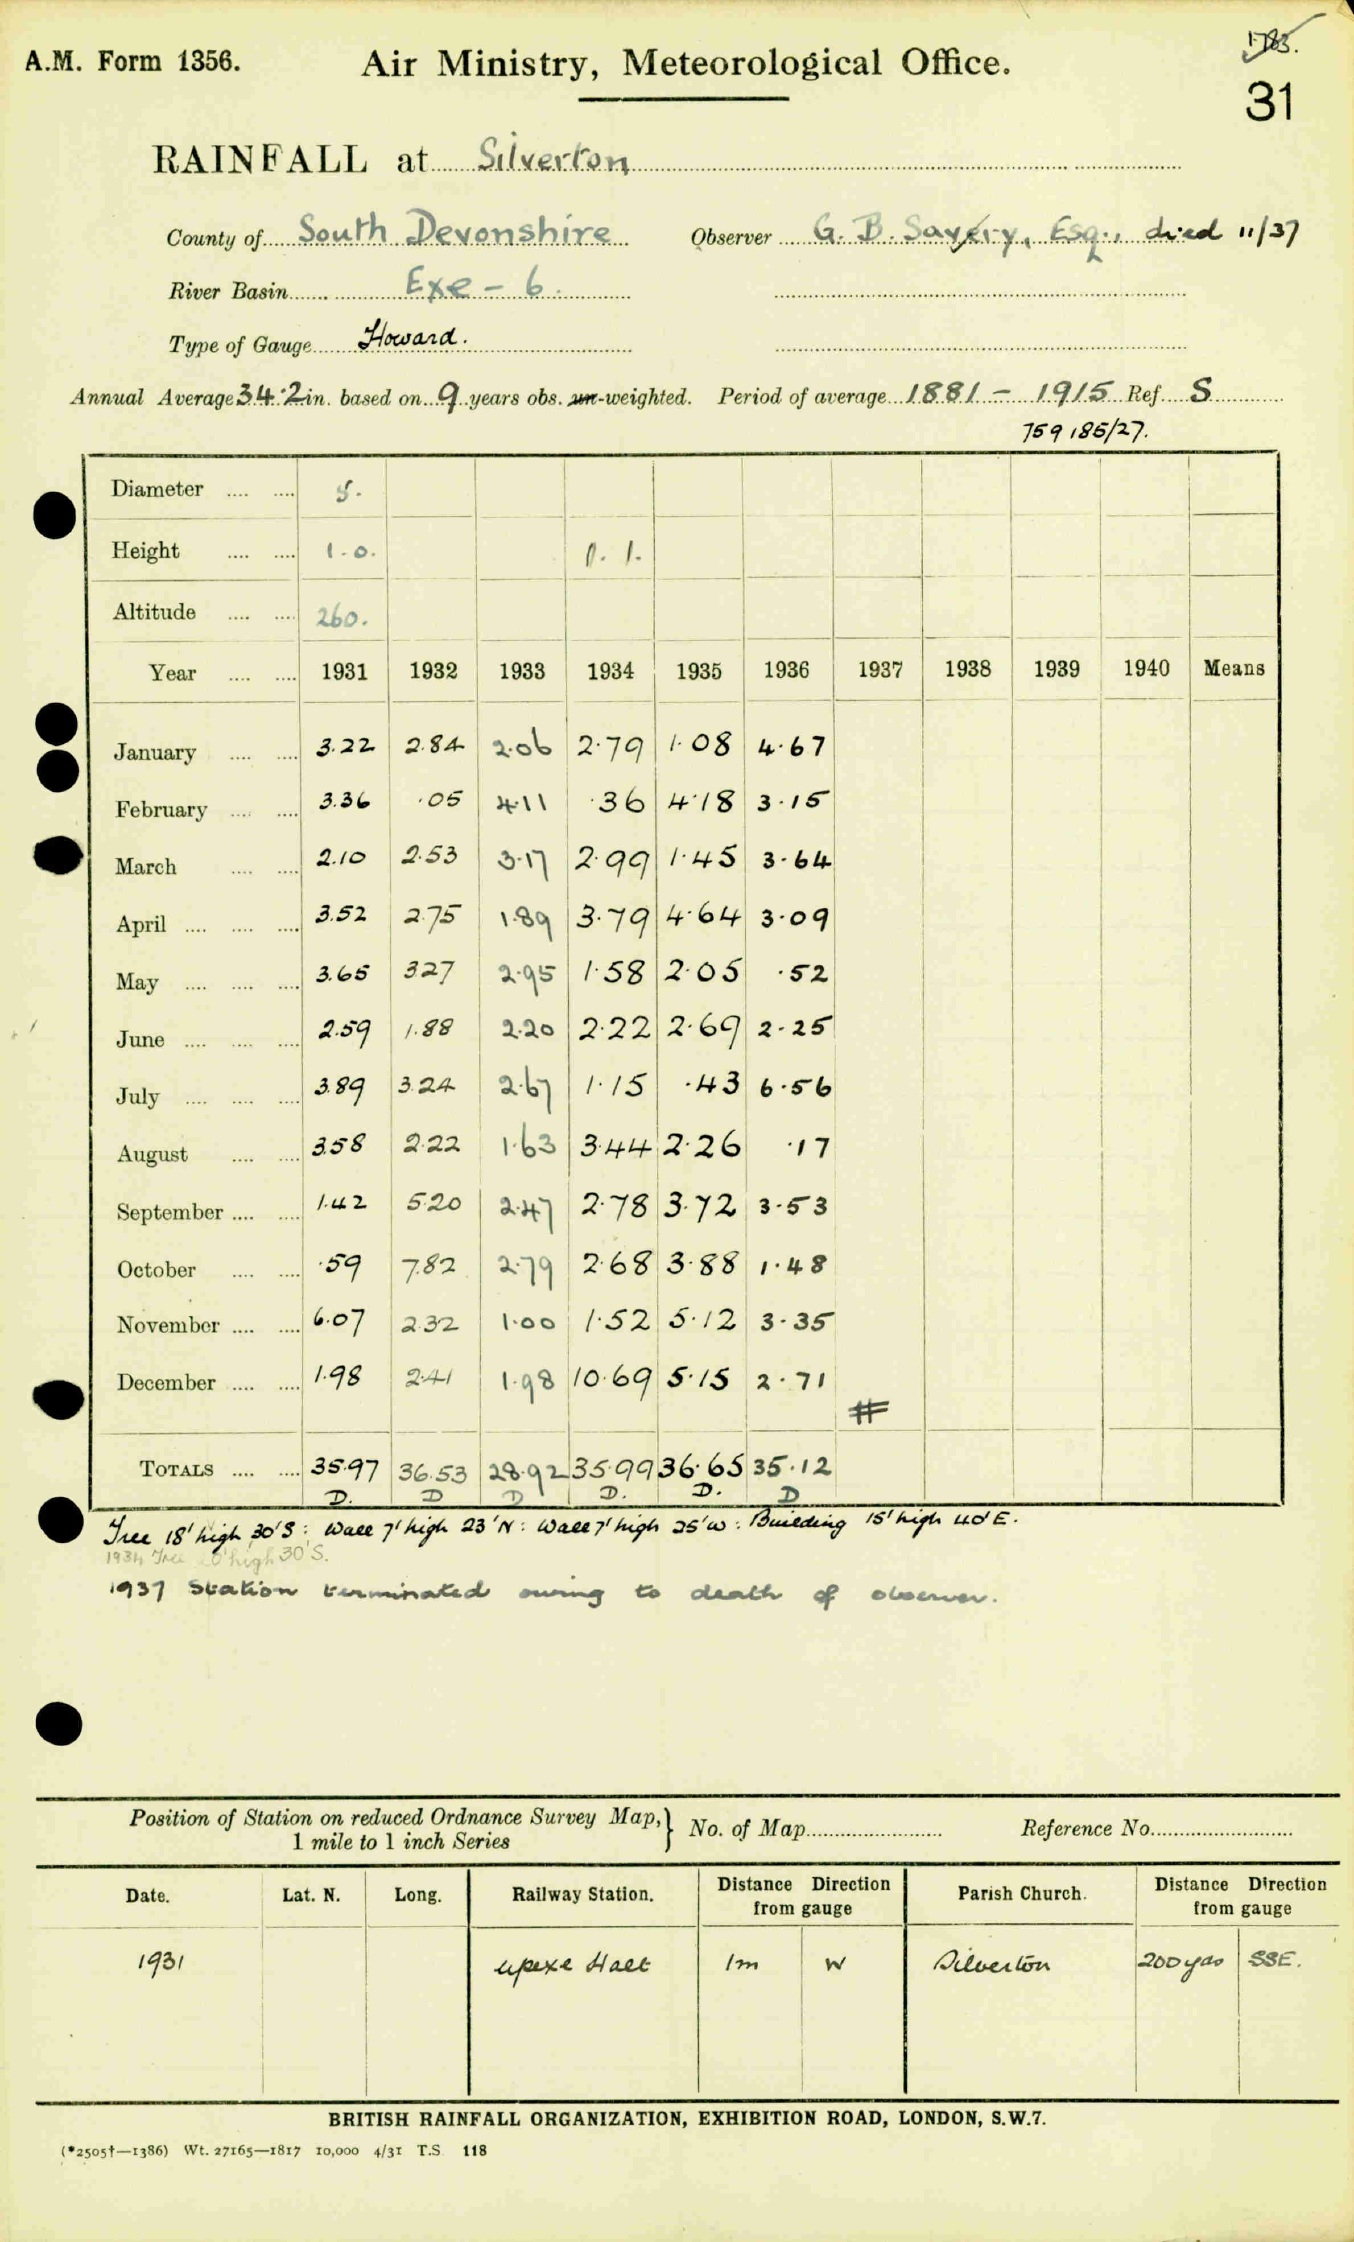 A.M. Form 1356. Air Ministry, Meteorological Office. 1783.
31
RAINFALL at Silverton
County of South Devonshire Observer G. B. Savery, Esq., died 11/37
River Basin Exe - 6.
Type of Gauge Howard.
Annual Average 34.2 in. based on 9 years obs. un-weighted. Period of average 1881 - 1915 Ref. S
759185/27.
Diameter .... .... 5.
Height .... .... 1.0. 1.1.
Altitude .... .... 260.
Year .... .... 1931 1932 1933 1934 1935 1936 1937 1938 1939 1940 Means
January .... .... 3.22 2.84 2.06 2.79 1.08 4.67
February .... .... 3.36 .05 4.11 .36 4.18 3.15
March .... .... 2.10 2.53 3.17 2.99 1.45 3.64
April .... .... .... 3.52 2.75 1.89 3.79 4.64 3.09
May .... .... .... 3.65 3.27 2.95 1.58 2.05 .52
June .... .... .... 2.59 1.88 2.20 2.22 2.69 2.25
July .... .... .... 3.89 3.24 2.67 1.15 .43 6.56
August .... .... 3.58 2.22 1.63 3.44 2.26 .17
September .... .... 1.42 5.20 2.47 2.78 3.72 3.53
October .... .... .59 7.82 2.79 2.68 3.88 1.48
November .... .... 6.07 2.32 1.00 1.52 5.12 3.35
December .... .... 1.98 2.41 1.98 10.69 5.15 2.71
#
TOTALS .... .... 35.97 36.53 28.92 35.99 36.65 35.12
D. D D D. D. D
Tree 18' high 30'S: Wall 7' high 23'N: Wall 7' high 25'W: Building 15' high 40'E.
1934 Tree 20' high 30'S.
1937 Station terminated owing to death of observer.
Position of Station on reduced Ordnance Survey Map, 1 mile to 1 inch Series } No. of Map Reference No.
Date. Lat. N. Long. Railway Station. Distance Direction from gauge Parish Church. Distance Direction from gauge
1931 Upexe Halt 1m W Silverton 200 yds SSE.
BRITISH RAINFALL ORGANIZATION, EXHIBITION ROAD, LONDON, S.W.7.
(*2505†—1386) Wt. 27165—1817 10,000 4/31 T.S. 118